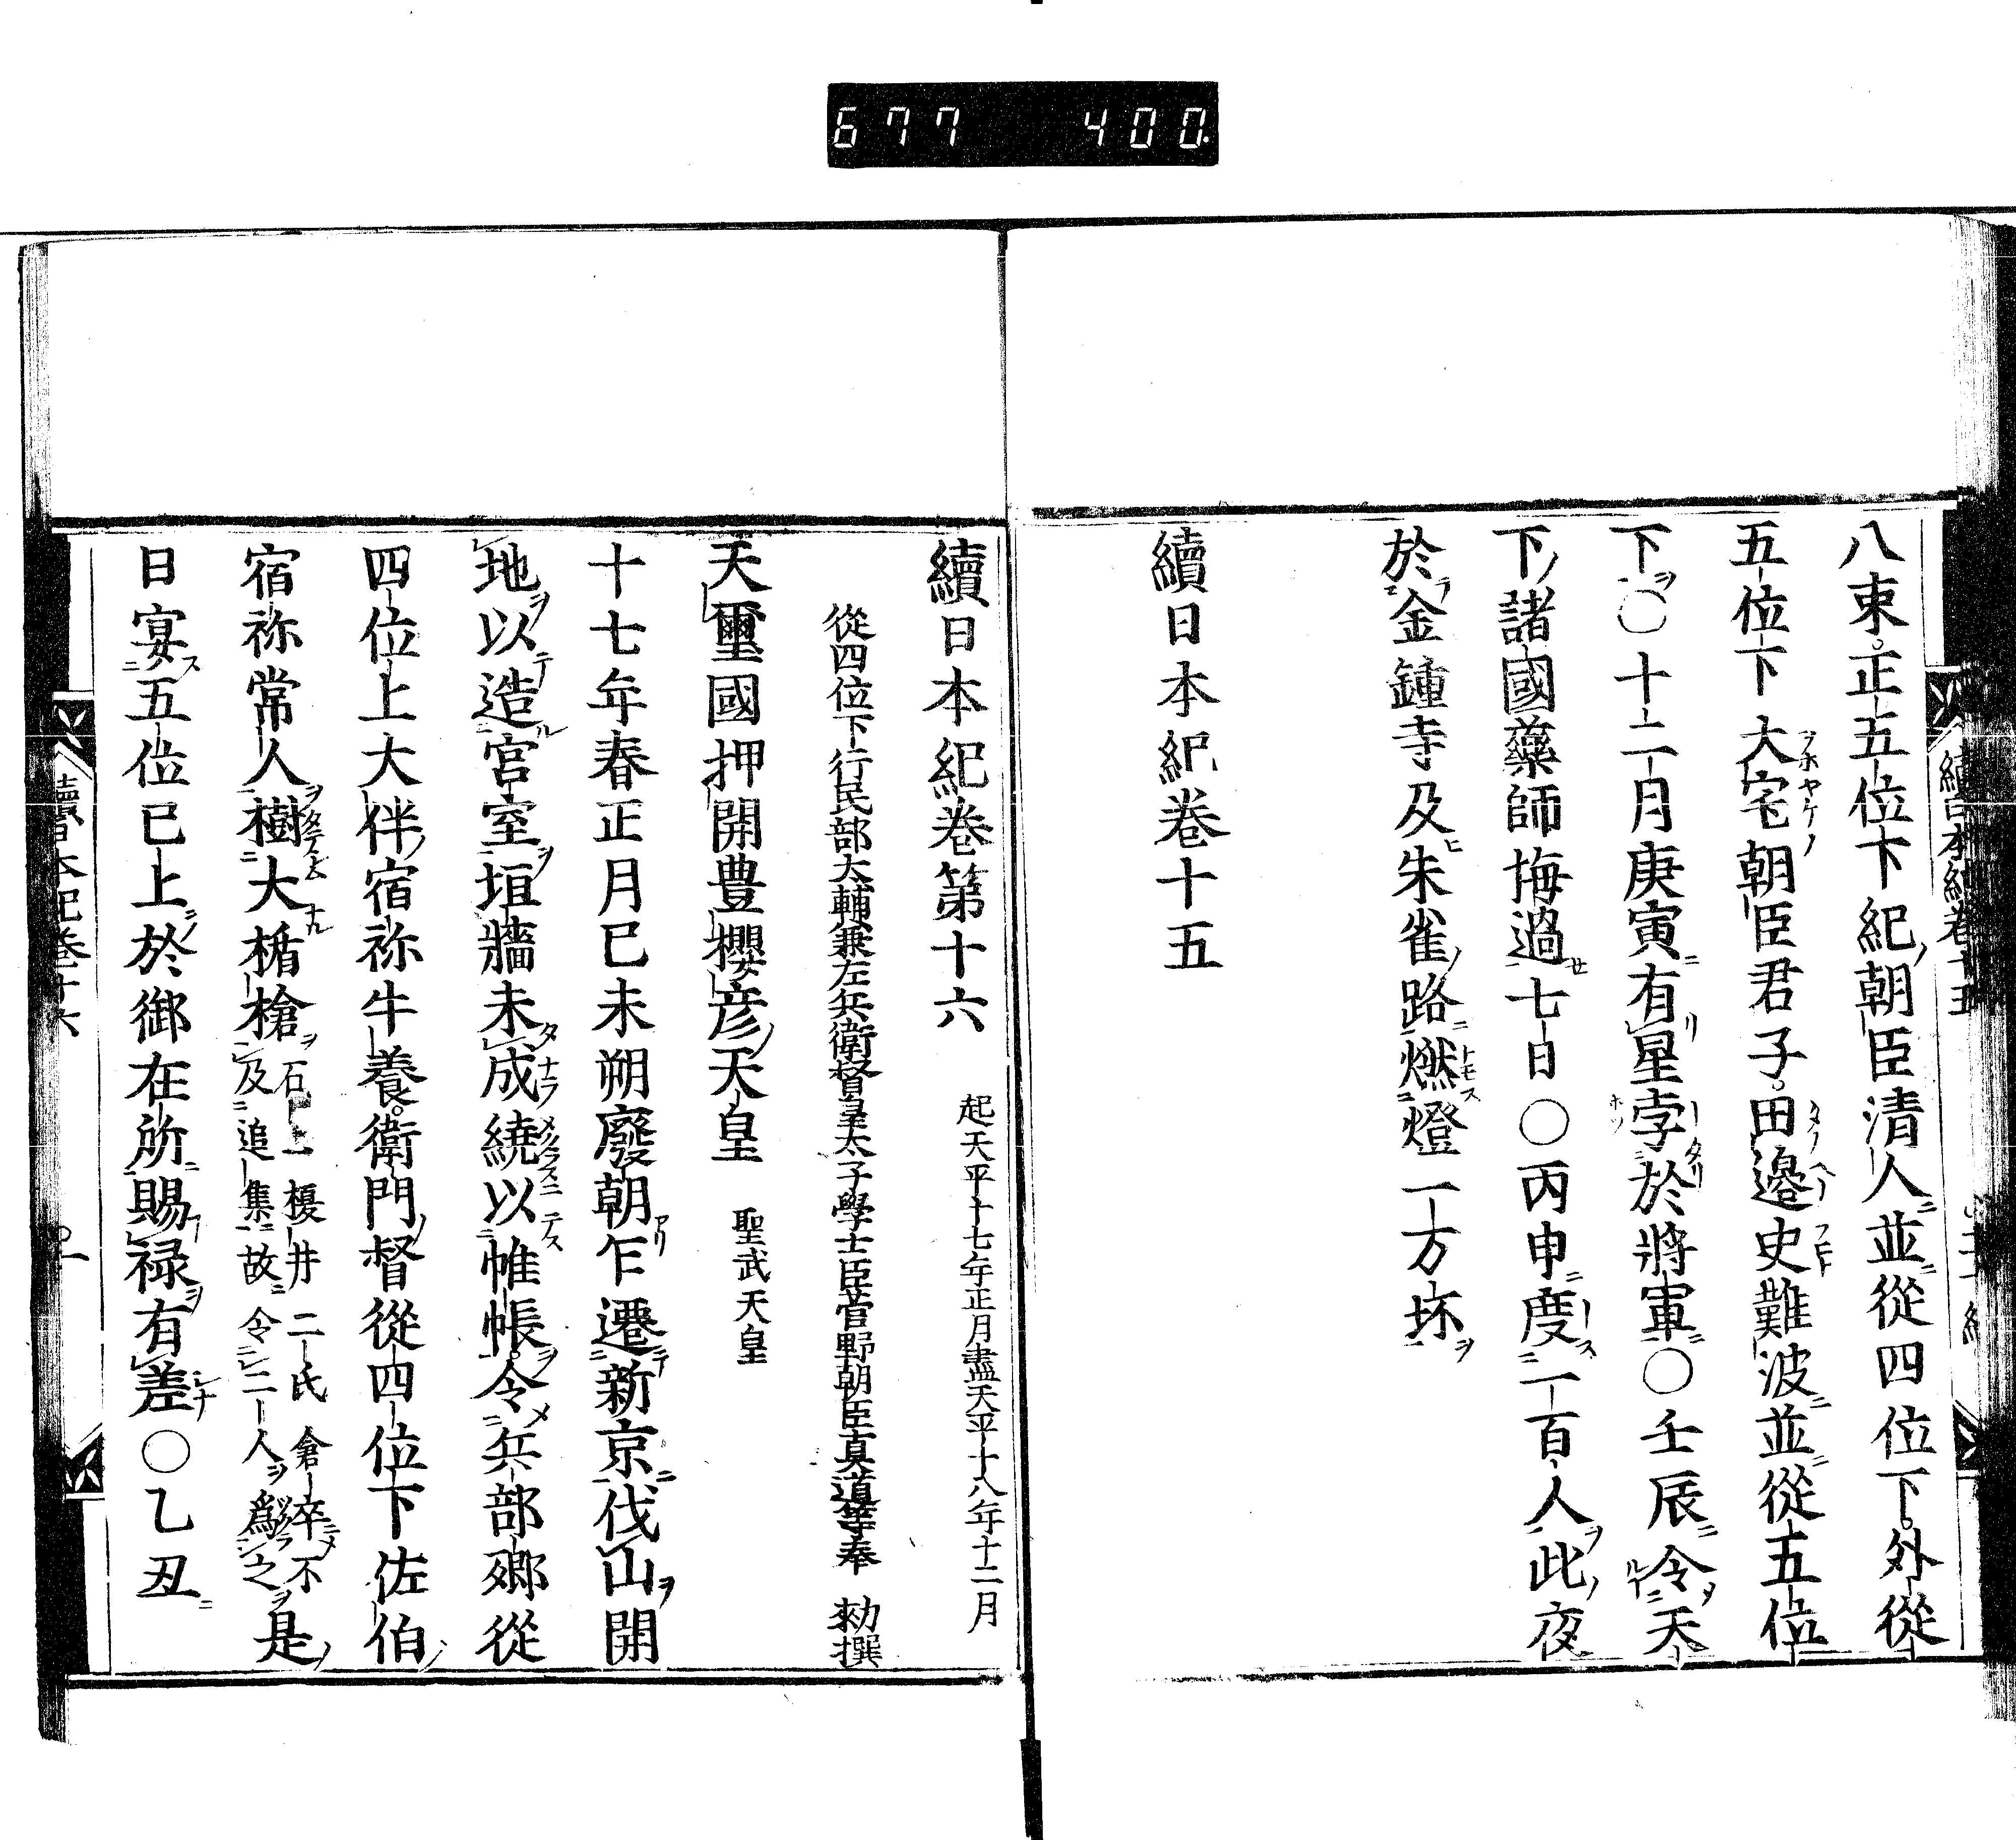 677 400.
八束。正五位下紀朝臣清人並從四位下。外從
五位下大宅朝臣君子。田邊史難波並從五位
下○十二月庚寅有星孛於將軍○壬辰令天
下諸國藥師悔過七日○丙申度一百人此夜
於金鍾寺及朱雀路燃燈一万坏
續日本紀卷十五
續日本紀卷第十六 起天平十七年正月盡天平十八年十二月
從四位下行民部大輔兼左兵衛督皇太子學士臣菅野朝臣真道等奉 勅撰
天璽國押開豊櫻彦天皇 聖武天皇
十七年春正月已未朔廢朝乍遷新京伐山開
地以造宮室垣牆未成繞以帷帳。令兵部郷從
四位上大伴宿祢牛養。衛門督從四位下佐伯
宿祢常人樹大楯槍 石上榎井二氏倉卒不
及追集故令二人爲之 是
日宴五位已上於御在所賜禄有差○乙丑
續日本紀卷十六